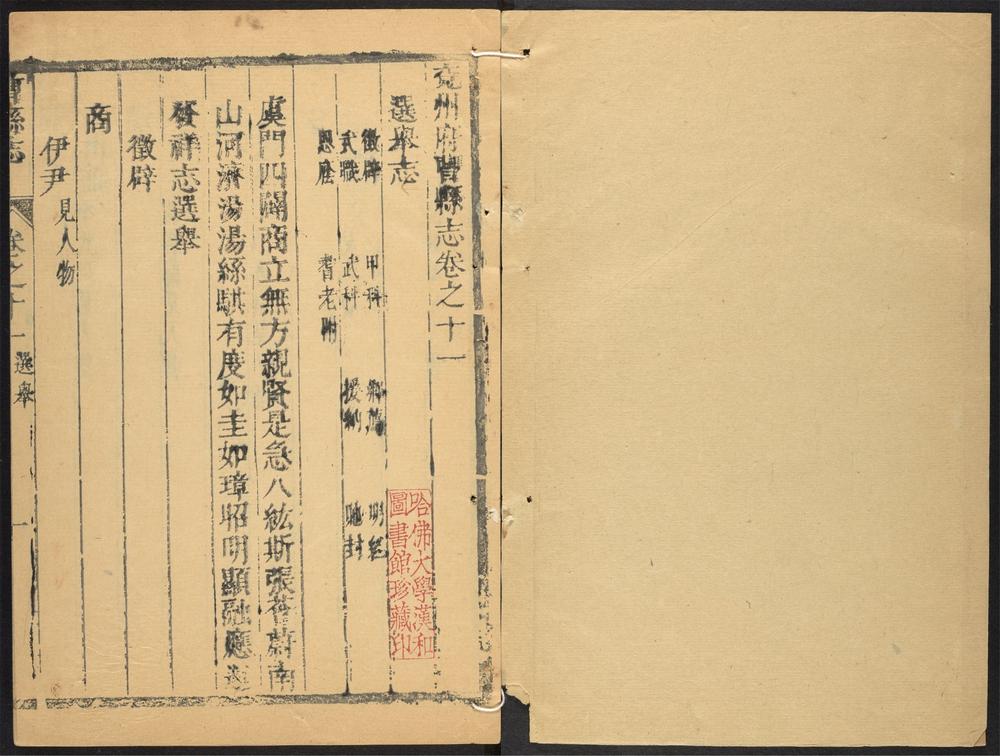 兗州府曹縣志卷之十一
選舉志
徵辟 甲科 鄉薦 明經
武職 武科 援納 馳封
恩廕 耆老附
虞門四闢商立無方親賢是急八紘斯張薈蔚南
山河濟湯湯絲騏有度如圭如璋昭明顯融應
發祥志選舉
徵辟
商
伊尹 見人物
曹縣志 卷之十一 選舉 一
哈佛大學漢和
圖書館珍藏印